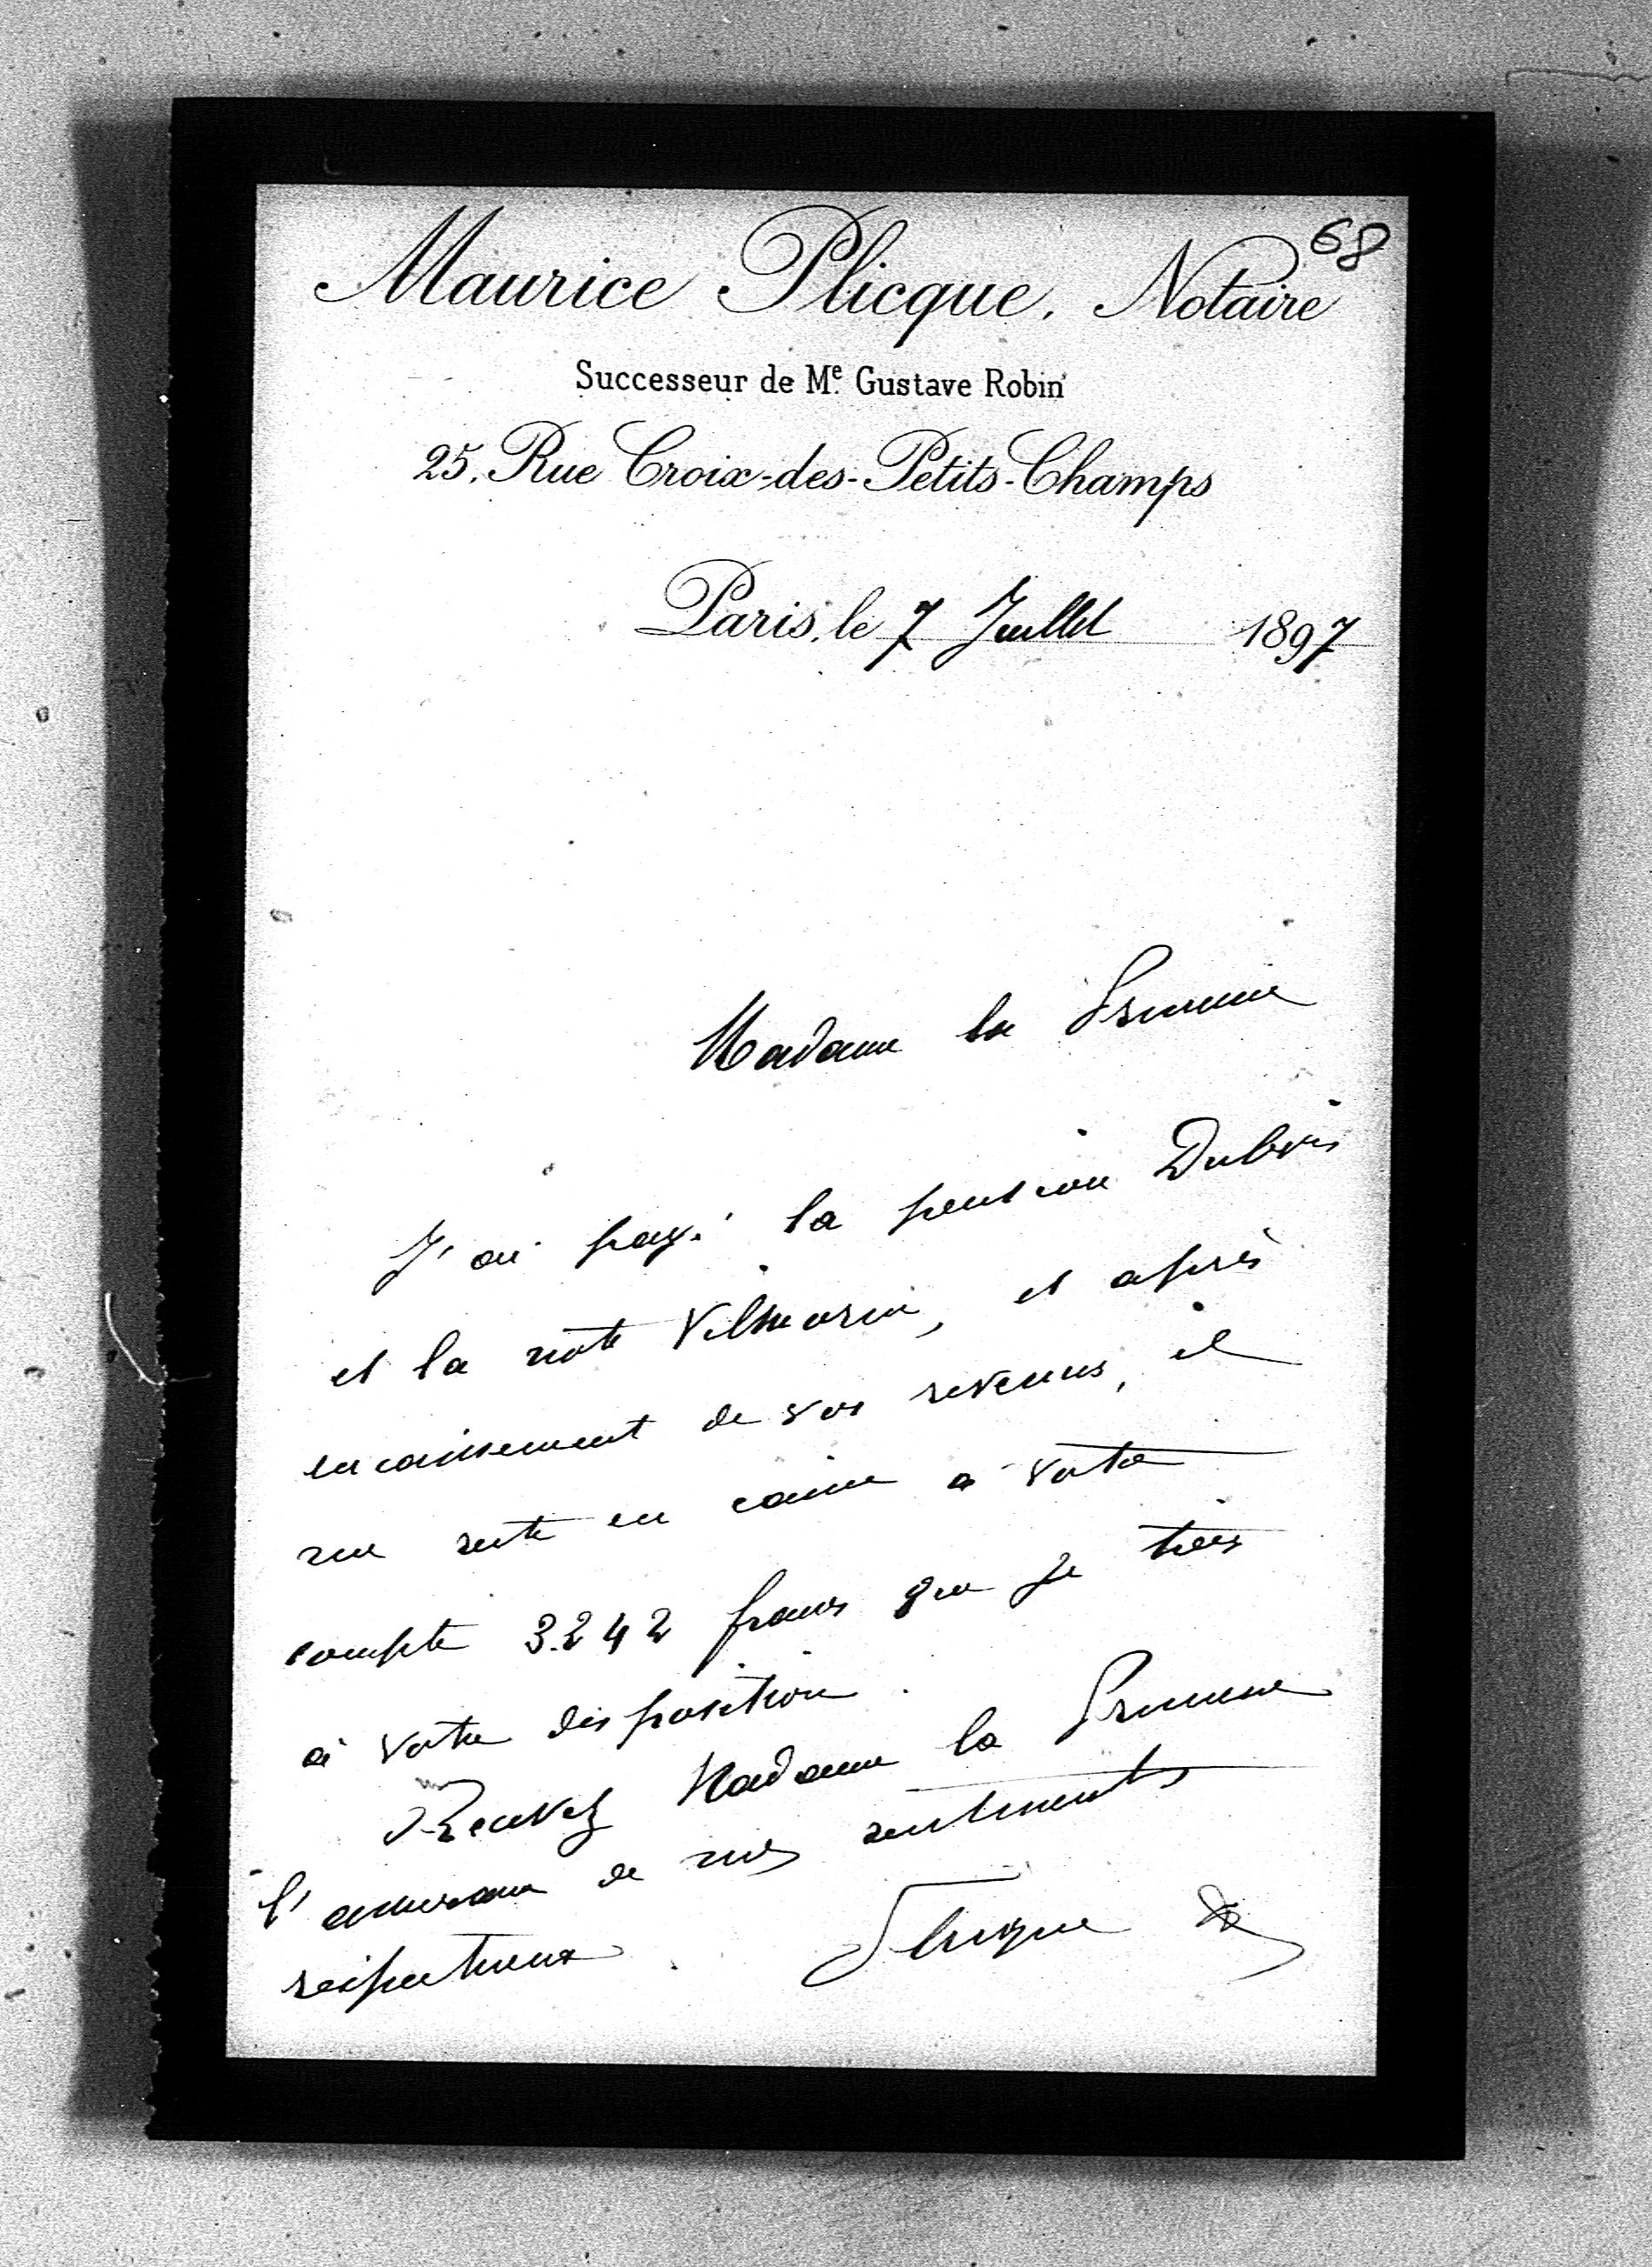 68
Maurice Plicque, Notaire
Successeur de Me Gustave Robin
25, Rue Croix-des-Petits-Champs
Paris, le 7 Juillet 1897
Madame la Princesse
J'ai payé la pension Dubois
et la note Vilmorin, et après
encaissement de vos revenus, il
me reste en caisse à votre
compte 3.242 francs que je tiens
à votre disposition.
Recevez Madame la Princesse
l'assurance de mes sentiments
respectueux.
Plicque